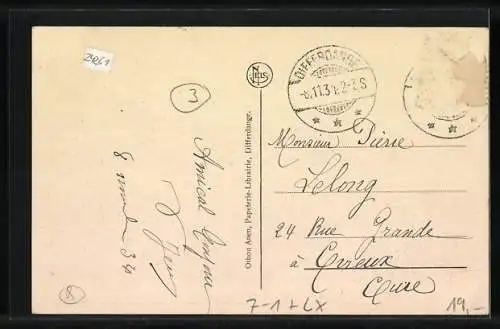 3261
3
Amical
8 nov 34
Othon Assen, Papeterie-Librairie, Differdange.
NELS
DIFFERDANGE
-8.11.34. 2-3 S
Monsieur Pierre
Lelong
24 Rue Grande
à Evreux
Eure
7-1+LX
19,-